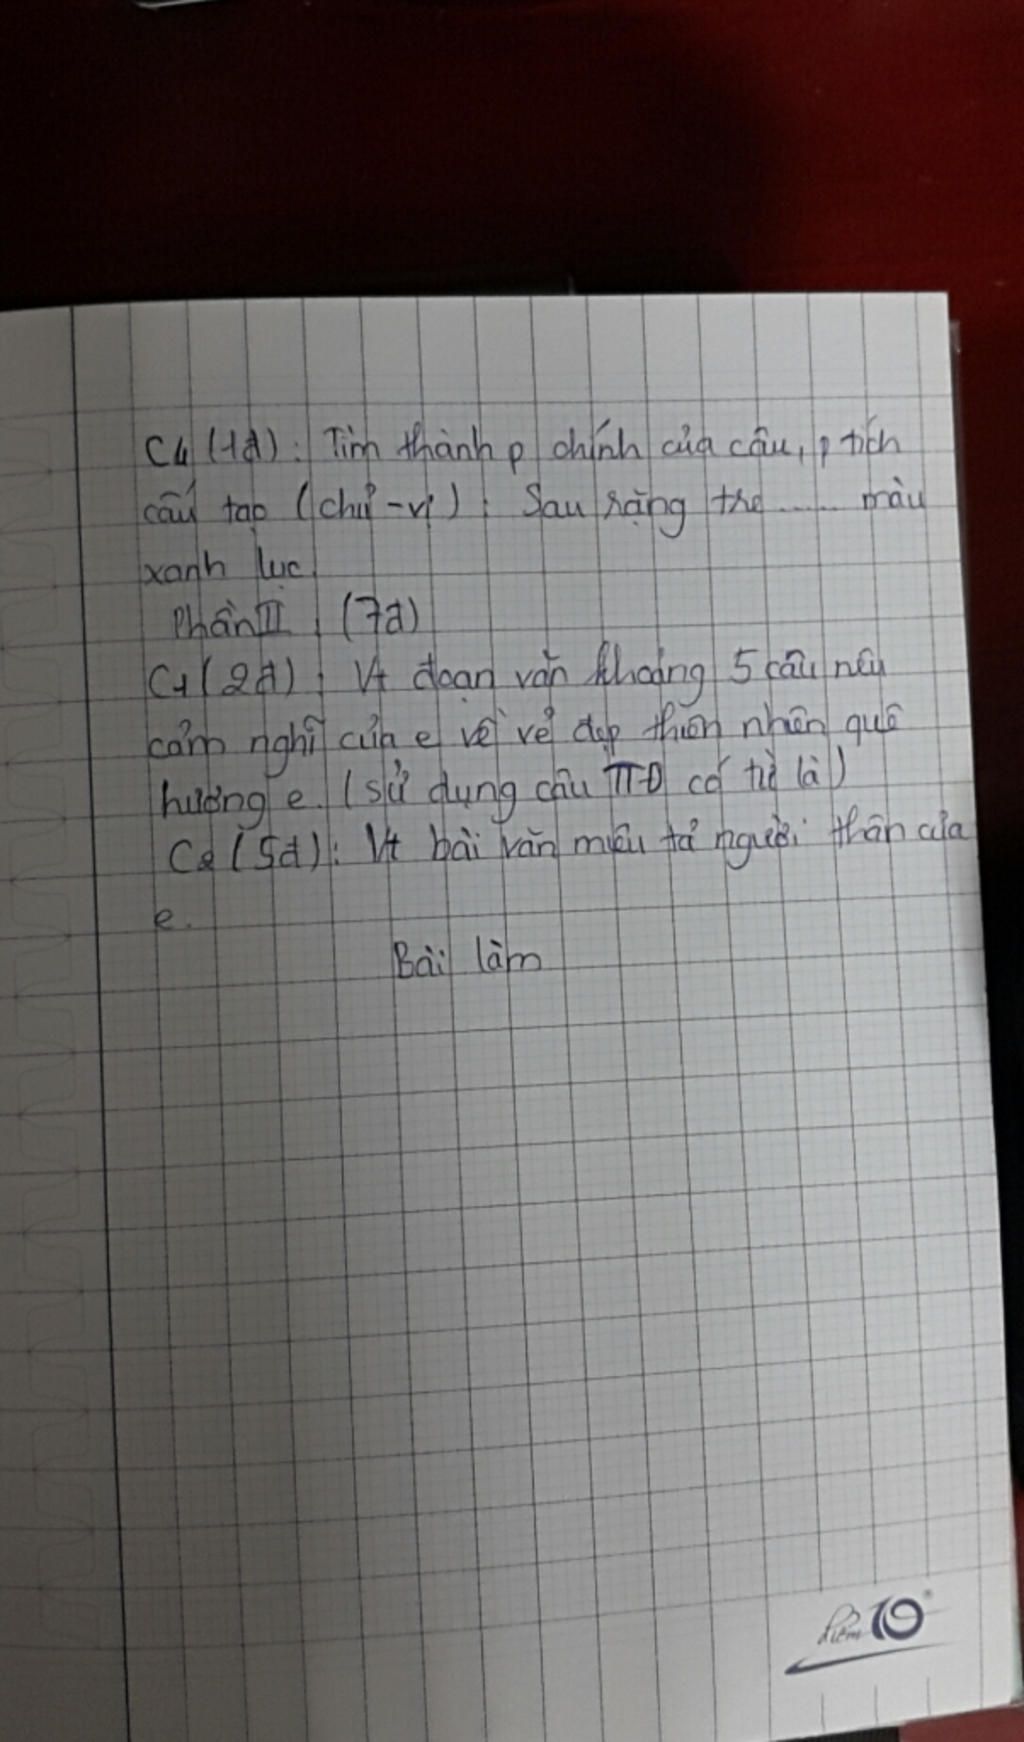 C4 (1đ): Tìm thành p chính của câu, p tích
cấu tạo (chủ-vị): Sau rặng tre ...... màu
xanh lục
Phần II (7đ)
C1 (2đ): Vt đoạn văn khoảng 5 câu nêu
cảm nghĩ của e về vẻ đẹp thiên nhiên quê
hương e. (sử dụng câu TTĐ có từ là)
C2 (5đ): Vt bài văn miêu tả người thân của
e.
Bài làm
điểm 10